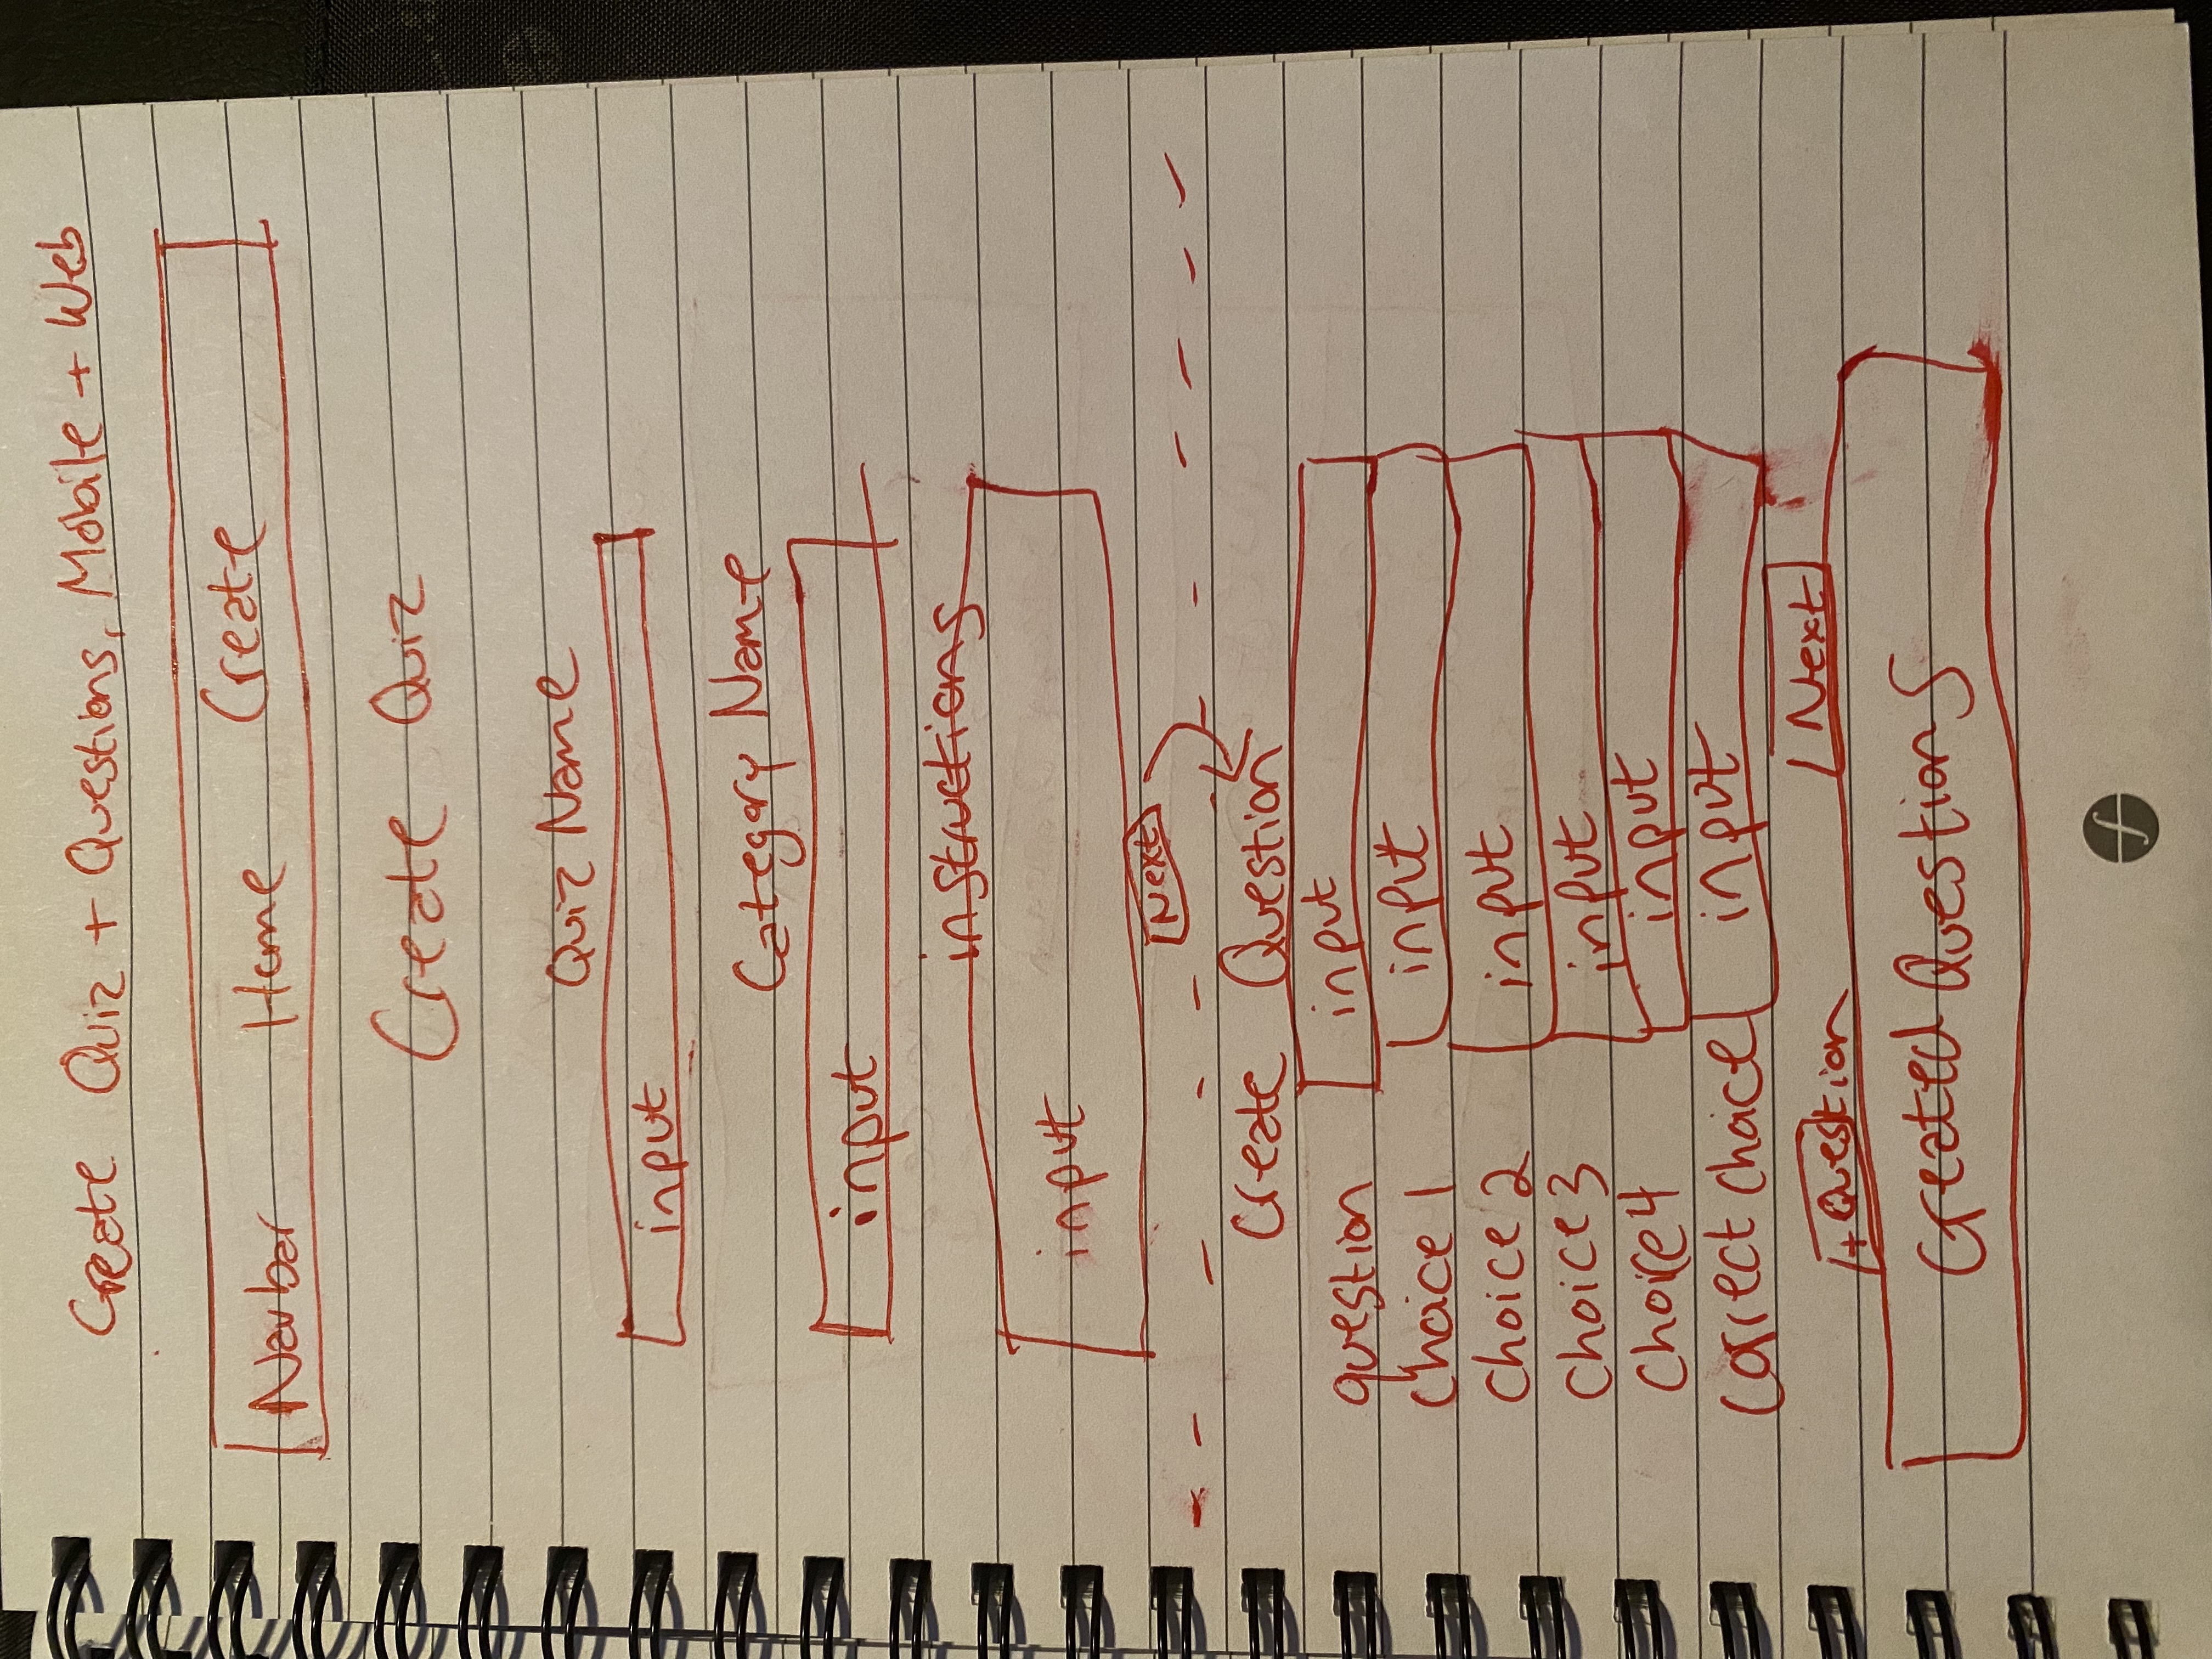 Create Quiz + Questions, Mobile + Web
Navbar Home Create
Create Quiz
Quiz Name
input
Category Name
input
instructions
input
Next
Create Question
question input
choice 1 input
choice 2 input
choice 3 input
choice 4 input
correct choice input
+ Question Next
Created Questions